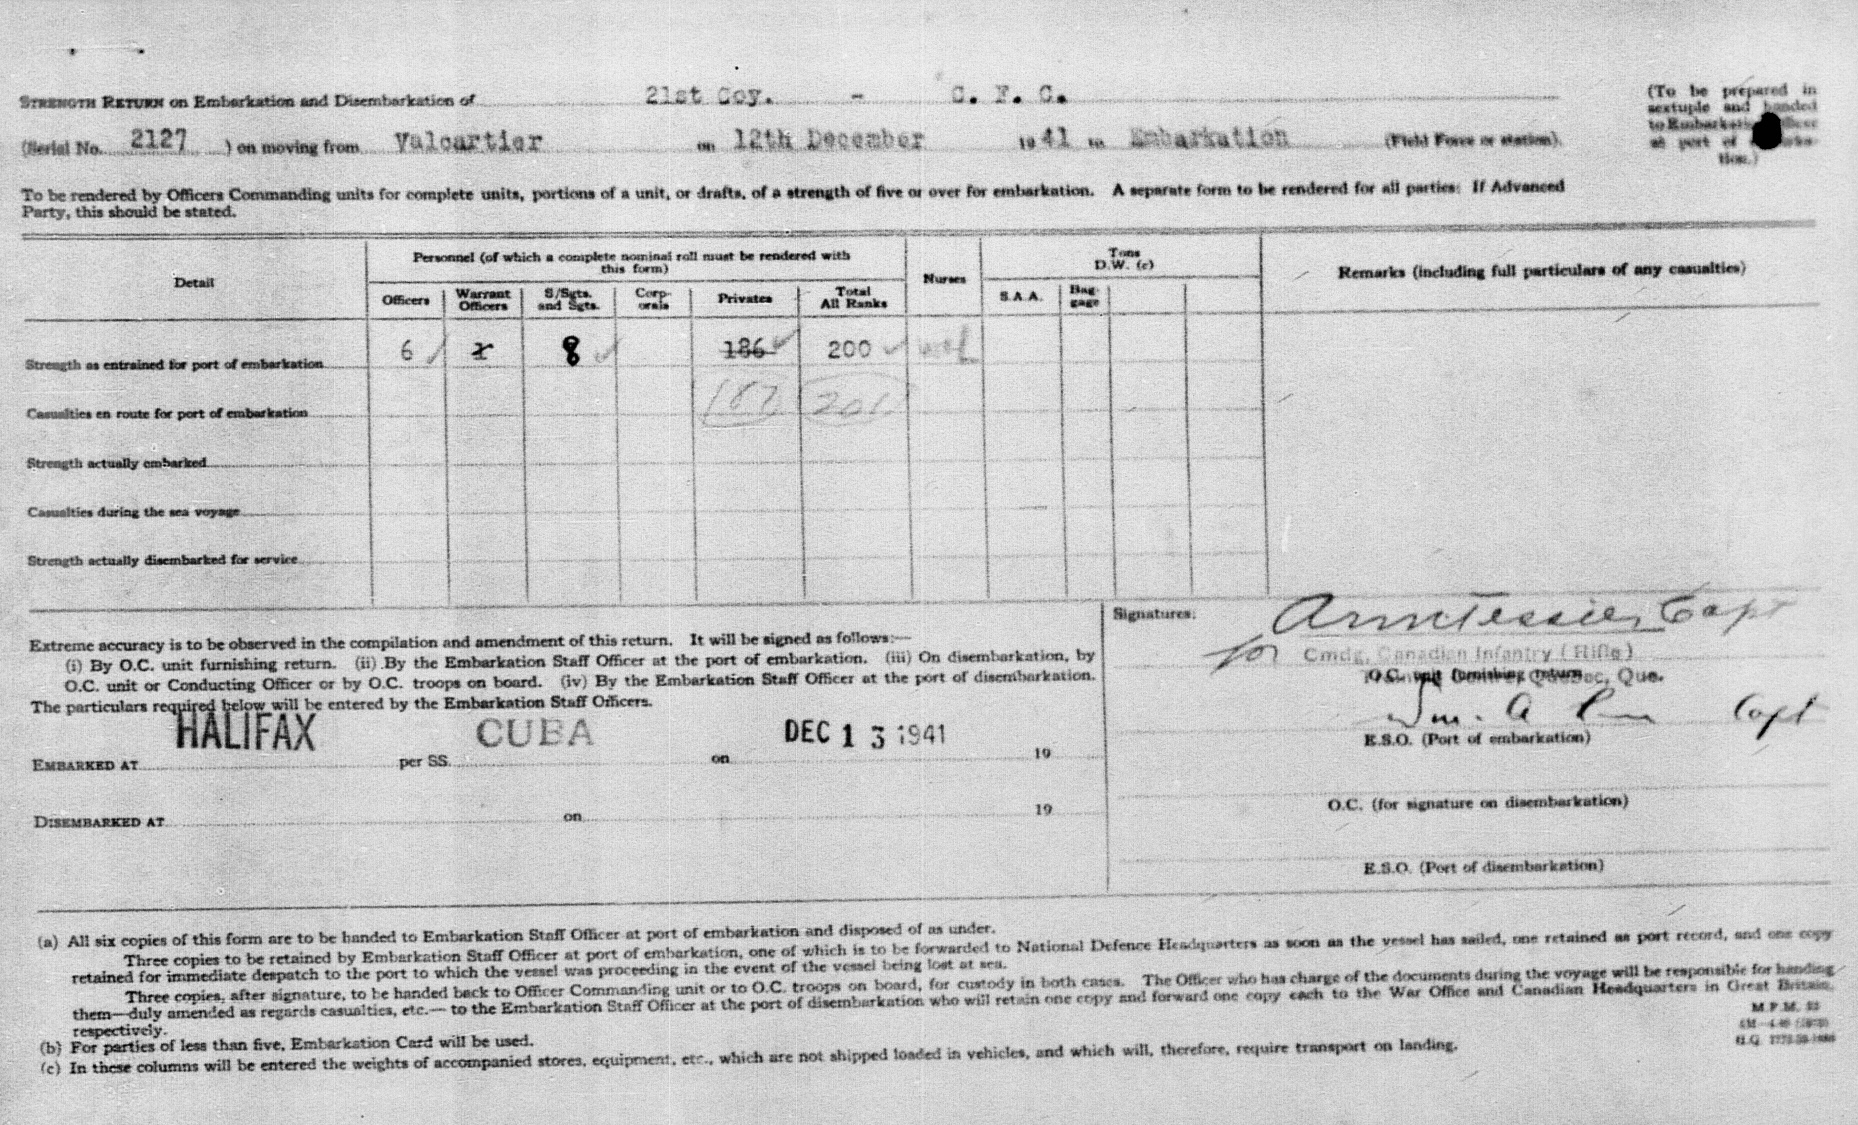 STRENGTH RETURN on Embarkation and Disembarkation of 21st Coy. - C. F. C.
(Serial No. 2127 ) on moving from Valcartier on 12th December 19 41 to Embarkation (Field Force or station).
(To be prepared in
sextuple and handed
to Embarkation Officer
at port of
tion.)
To be rendered by Officers Commanding units for complete units, portions of a unit, or drafts, of a strength of five or over for embarkation. A separate form to be rendered for all parties: If Advanced
Party, this should be stated.
Detail
Personnel (of which a complete nominal roll must be rendered with
this form)
Nurses
Tons
D.W. (c)
Remarks (including full particulars of any casualties)
Officers
Warrant
Officers
S/Sgts.
and Sgts.
Corp-
orals
Privates
Total
All Ranks
S.A.A.
Bag-
gage
Strength as entrained for port of embarkation 6 8 186 200
Casualties en route for port of embarkation 187 201
Strength actually embarked
Casualties during the sea voyage
Strength actually disembarked for service
Extreme accuracy is to be observed in the compilation and amendment of this return. It will be signed as follows:—
(i) By O.C. unit furnishing return. (ii) By the Embarkation Staff Officer at the port of embarkation. (iii) On disembarkation, by
O.C. unit or Conducting Officer or by O.C. troops on board. (iv) By the Embarkation Staff Officer at the port of disembarkation.
The particulars required below will be entered by the Embarkation Staff Officers.
EMBARKED AT HALIFAX per SS. CUBA on DEC 13 1941 19
DISEMBARKED AT on 19
Signatures:
Tessier Capt
for Cmdg. Canadian Infantry (Rifle)
Quebec, Que.
O.C. unit furnishing return
Wm. A Capt
E.S.O. (Port of embarkation)
O.C. (for signature on disembarkation)
E.S.O. (Port of disembarkation)
(a) All six copies of this form are to be handed to Embarkation Staff Officer at port of embarkation and disposed of as under.
Three copies to be retained by Embarkation Staff Officer at port of embarkation, one of which is to be forwarded to National Defence Headquarters as soon as the vessel has sailed, one retained as port record, and one copy
retained for immediate despatch to the port to which the vessel was proceeding in the event of the vessel being lost at sea.
Three copies, after signature, to be handed back to Officer Commanding unit or to O.C. troops on board, for custody in both cases. The Officer who has charge of the documents during the voyage will be responsible for handing
them—duly amended as regards casualties, etc.— to the Embarkation Staff Officer at the port of disembarkation who will retain one copy and forward one copy each to the War Office and Canadian Headquarters in Great Britain,
respectively.
(b) For parties of less than five, Embarkation Card will be used.
(c) In these columns will be entered the weights of accompanied stores, equipment, etc., which are not shipped loaded in vehicles, and which will, therefore, require transport on landing.
M.F.M.
H.Q.